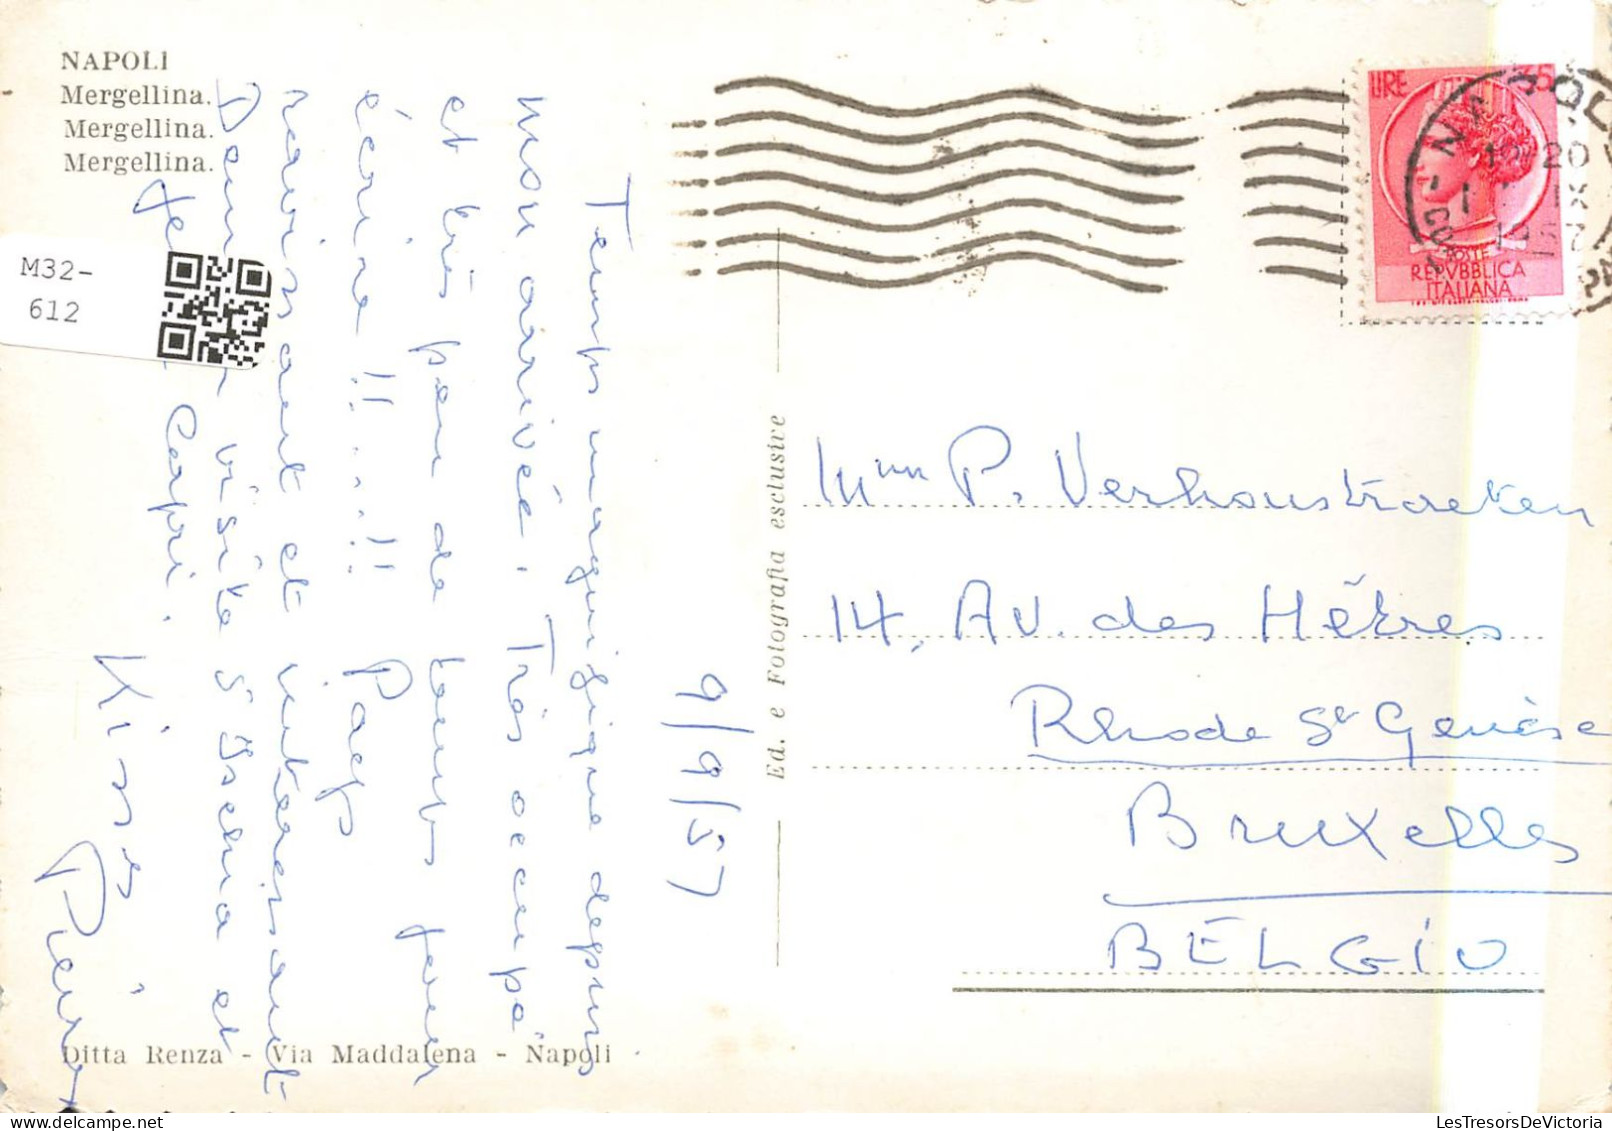 NAPOLI
Mergellina.
Mergellina.
Mergellina.
M32-
612
9/9/57
Temps magnifique depuis
mon arrivée. Très occupé
et très peu de temps pour
écrire !! ....!!
ravissant et intéressant
visite d'Ischia et
Capri.
Kisses
Pierre
Ditta Renza - Via Maddalena - Napoli
Ed. e Fotografia esclusive
LIRE 35
POSTE
REPVBBLICA
ITALIANA
1957
P. Verhoustraeten
14, Av. des Hêtres
Rhode St Genèse
Bruxelles
BELGIO
LesTresorsDeVictoria.com